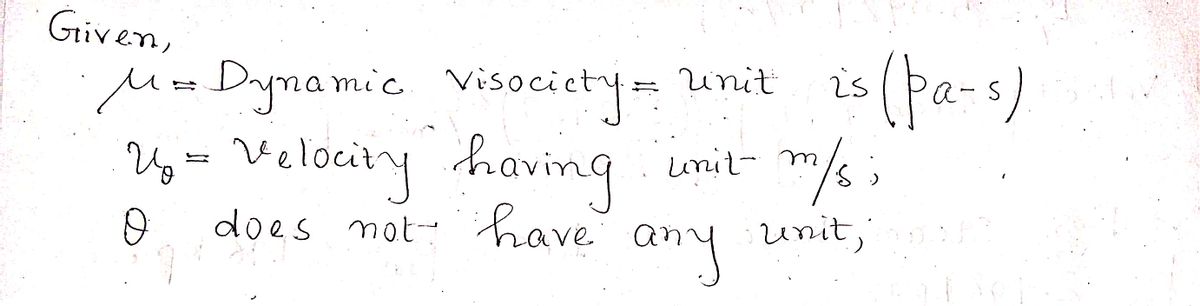 Given,
μ = Dynamic Visocicty = unit is (pa-s)
u_θ = Velocity having unit m/s;
θ does not have any unit;